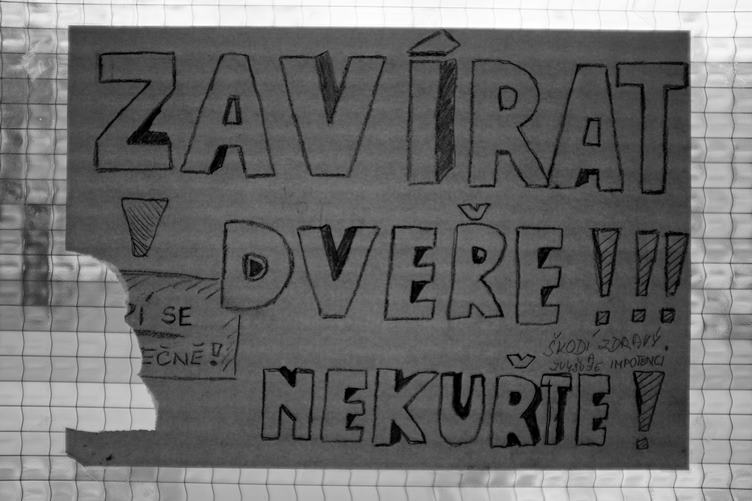 ZAVÍRAT
! DVEŘE !!!
SE
EČNĚ!
ŠKODÍ ZDRAVÝ.
ZVYŠUJE IMPOTENCI
NEKUŘTE !